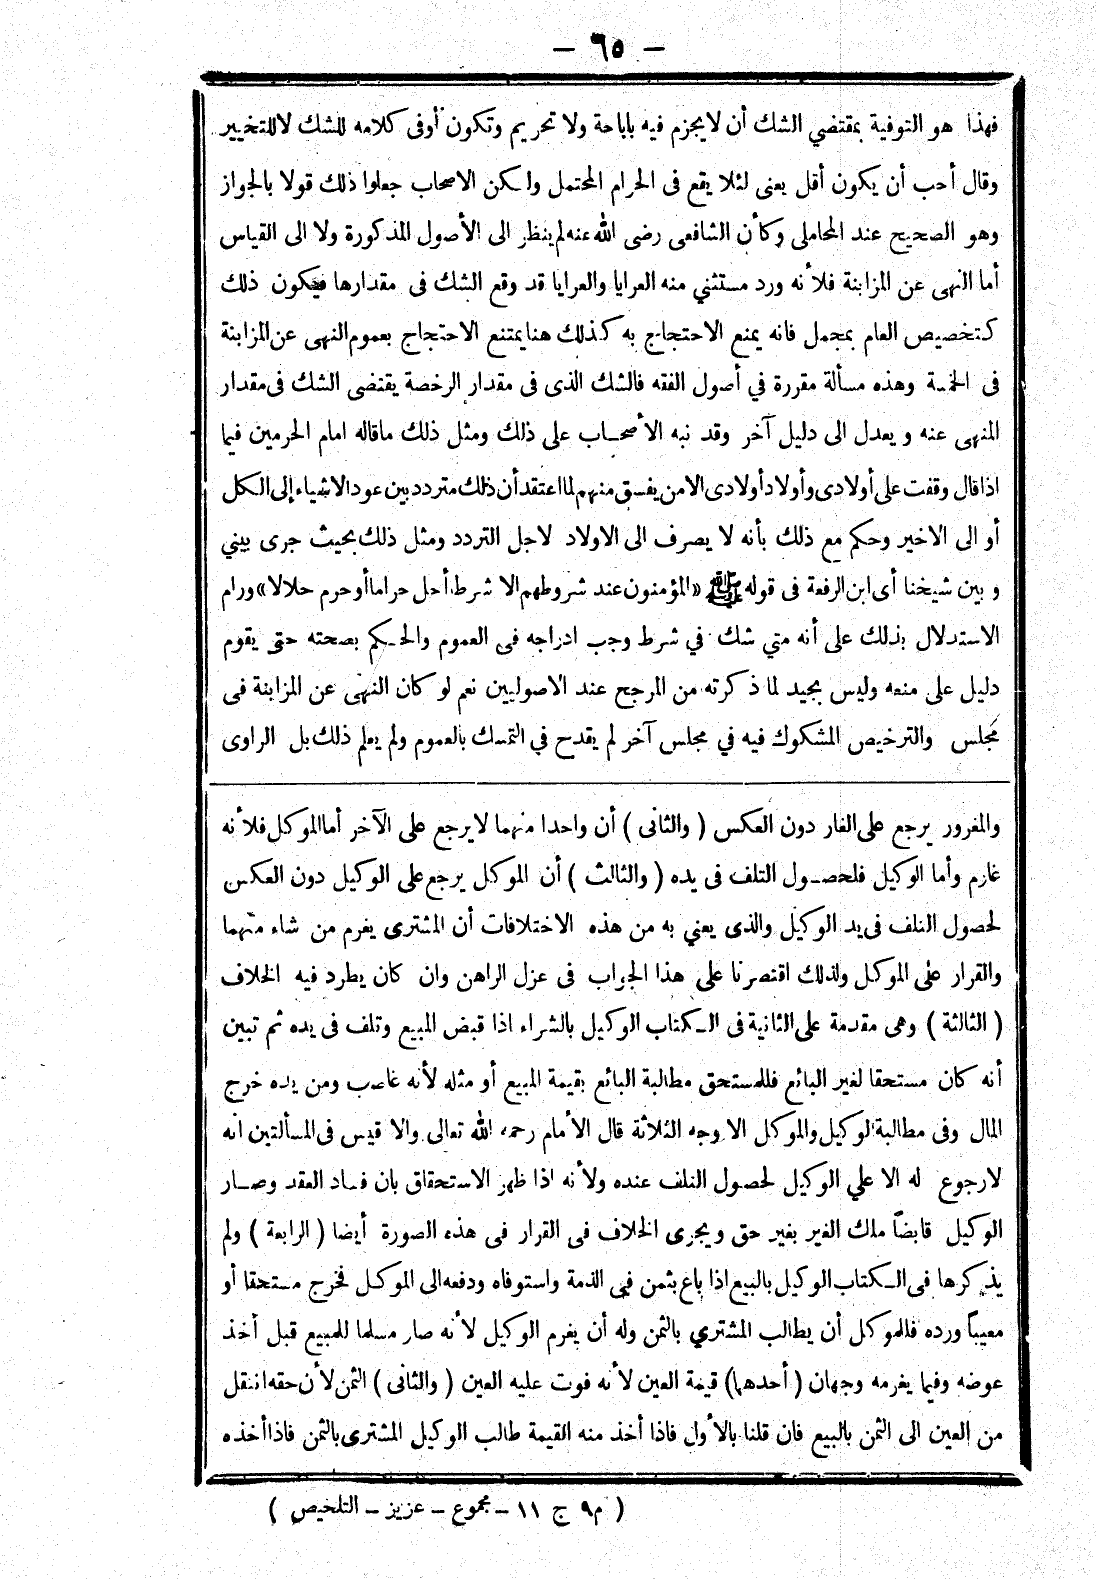 — ٦٥ —
فهذا هو التوفية بمقتضي الشك أن لا يجزم فيه باباحة ولا تحريم وتكون أوفى كلامه للشك لا للتخيير
وقال أحب أن يكون أقل يعنى لئلا يقع فى الحرام المحتمل ولكن الاصحاب جعلوا ذلك قولا بالجواز
وهو الصحيح عند المحاملى وكأن الشافعى رضى الله عنه لم ينظر الى الأصول المذكورة ولا الى القياس
أما النهى عن المزابنة فلأنه ورد مستثني منه العرايا والعرايا قد وقع الشك فى مقدارها فيكون ذلك
كتخصيص العام بمجمل فانه يمنع الاحتجاج به كذلك هنا يمتنع الاحتجاج بعموم النهى عن المزابنة
فى الخمسة وهذه مسألة مقررة في أصول الفقه فالشك الذى فى مقدار الرخصة يقتضى الشك فى مقدار
المنهى عنه ويعدل الى دليل آخر وقد نبه الأصحاب على ذلك ومثل ذلك ماقاله امام الحرمين فيما
اذا قال وقفت على أولادى وأولاد أولادى الا من يفسق منهم لما اعتقد أن ذلك متردد بين عود الاشياء إلى الكل
أو الى الاخير وحكم مع ذلك بأنه لا يصرف الى الاولاد لاجل التردد ومثل ذلك بحيث جرى بيني
وبين شيخنا أى ابن الرفعة فى قوله ﷺ «المؤمنون عند شروطهم الا شرط أحل حراما أو حرم حلالا» ورام
الاستدلال بذلك على أنه متي شك في شرط وجب ادراجه فى العموم والحكم بصحته حتى يقوم
دليل على منعه وليس بجيد لما ذكرته من المرجح عند الاصوليين نعم لو كان النهى عن المزابنة فى
مجلس والترخيص المشكوك فيه في مجلس آخر لم يقدح في التمسك بالعموم ولم يعلم ذلك بل الراوى
والمغرور يرجع على الغار دون العكس ( والثانى ) أن واحدا منهما لا يرجع على الآخر أما الموكل فلأنه
غارم وأما الوكيل فلحصول التلف فى يده ( والثالث ) أن الموكل يرجع على الوكيل دون العكس
لحصول التلف فى يد الوكيل والذى يعني به من هذه الاختلافات أن المشترى يغرم من شاء منهما
والقرار على الموكل ولذلك اقتصرنا على هذا الجواب فى عزل الراهن وان كان يطرد فيه الخلاف
( الثالثة ) وهى مقدمة على الثانية فى الكتاب الوكيل بالشراء اذا قبض المبيع وتلف فى يده ثم تبين
أنه كان مستحقا لغير البائع فللمستحق مطالبة البائع بقيمة المبيع أو مثله لأنه غاصب ومن يده خرج
المال وفى مطالبة الوكيل والموكل الاوجه الثلاثة قال الأمام رحمه الله تعالى والاقيس فى المسألتين انه
لارجوع له الا علي الوكيل لحصول التلف عنده ولأنه اذا ظهر الاستحقاق بان فساد العقد وصار
الوكيل قابضاً ملك الغير بغير حق ويجرى الخلاف فى القرار فى هذه الصورة أيضا ( الرابعة ) ولم
يذكرها فى الكتاب الوكيل بالبيع اذا باع بثمن في الذمة واستوفاه ودفعه الى الموكل فخرج مستحقا أو
معيباً ورده فالموكل أن يطالب المشتري بالثمن وله أن يغرم الوكيل لأنه صار مسلما للمبيع قبل أخذ
عوضه وفيما يغرمه وجهان ( أحدهما ) قيمة العين لأنه فوت عليه العين ( والثانى ) الثمن لأن حقه انتقل
من العين الى الثمن بالبيع فان قلنا بالأول فاذا أخذ منه القيمة طالب الوكيل المشترى بالثمن فاذا أخذه
( م٩ ج ١١ – مجموع – عزيز – التلخيص )